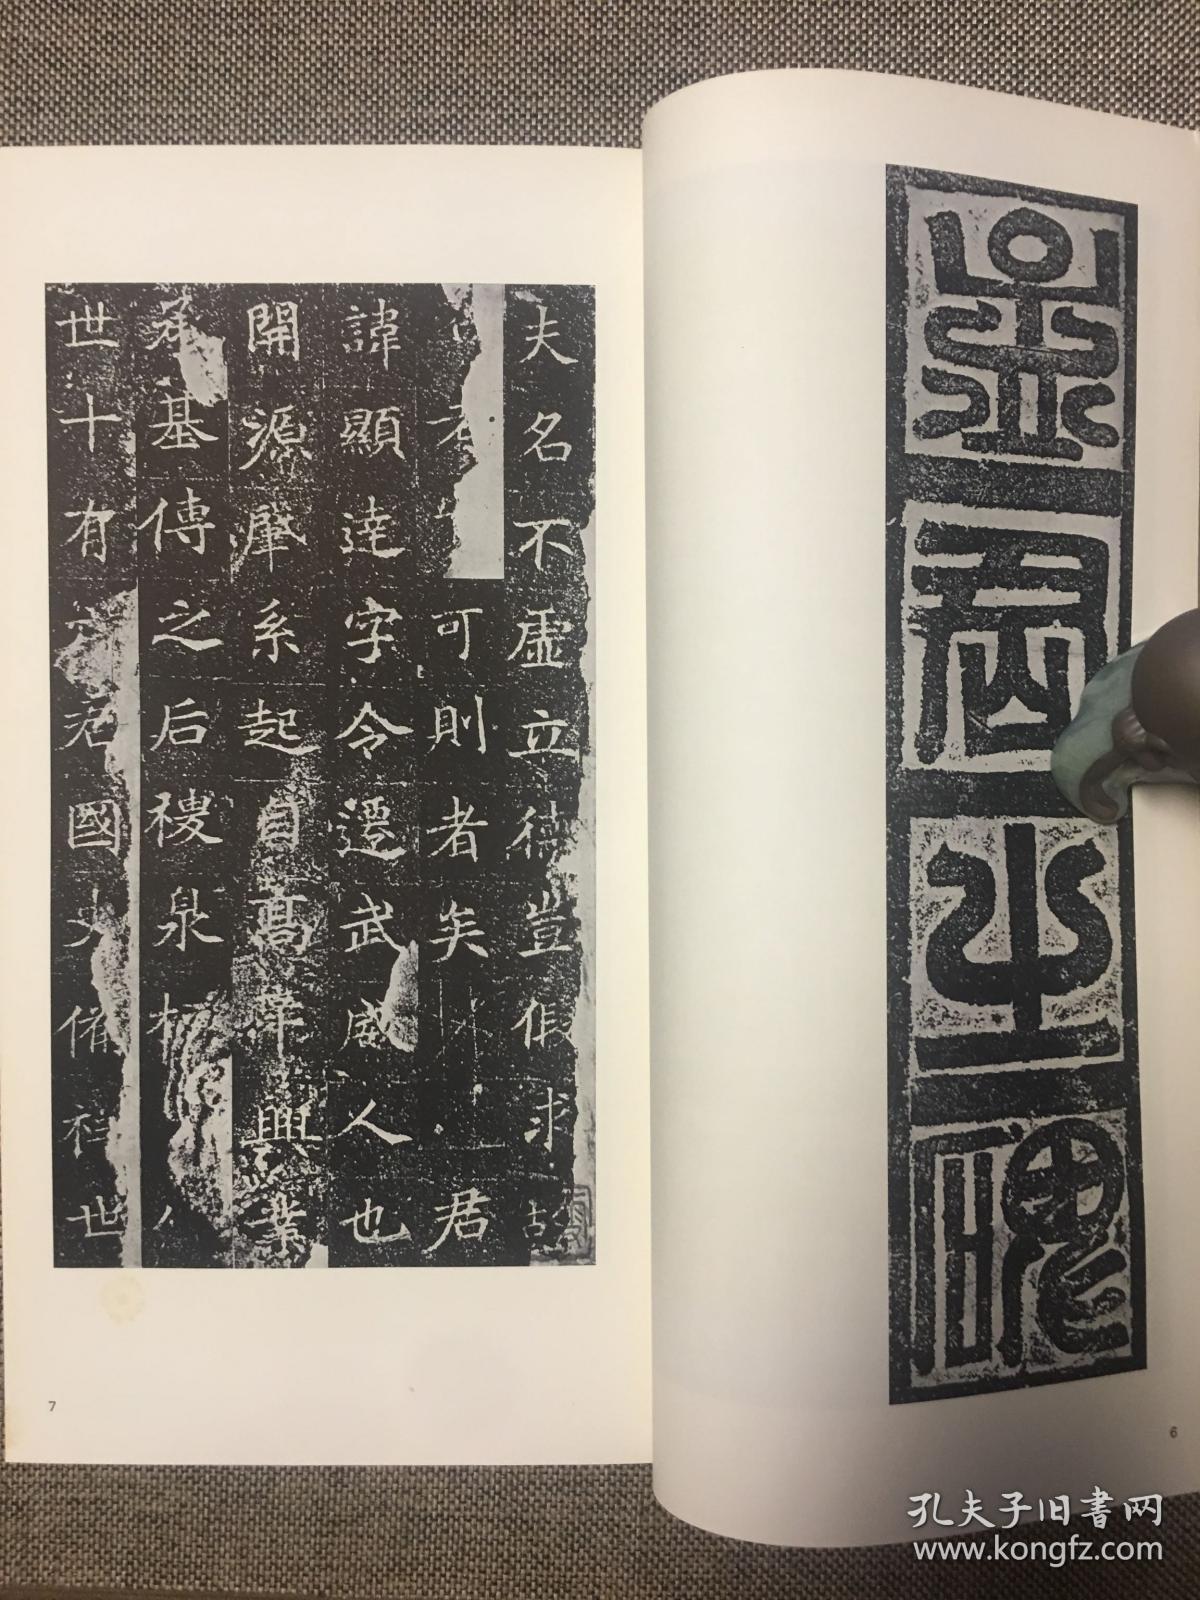 孟君之碑
6
夫名不虛立德豈假求
可則者矣君
諱顯達字令遷武威人也
開源肇系起自高辛興業
承基傳之后稷泉
世十有君國大備社世
7
孔夫子旧書网
www.kongfz.com